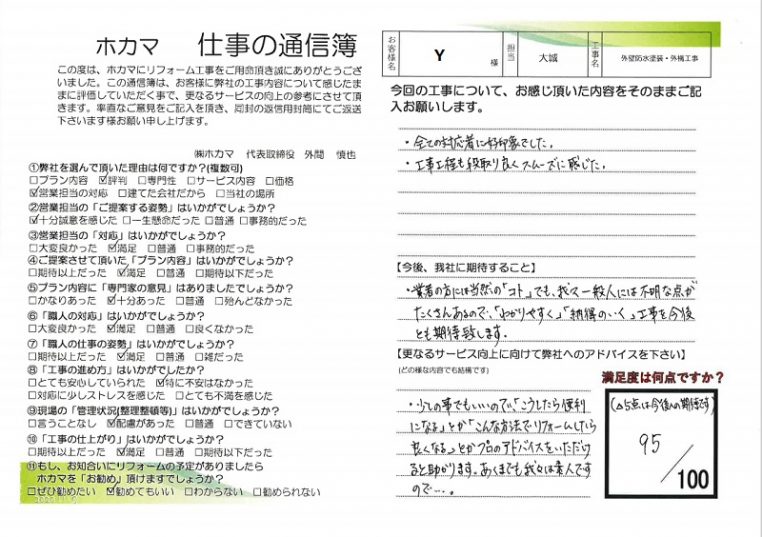 ホカマ 仕事の通信簿
この度は、ホカマにリフォーム工事をご用命頂き誠にありがとうござ
いました。この通信簿は、お客様に弊社の工事内容について感じたま
まに評価していただく事で、更なるサービスの向上の参考にさせて頂
きます。率直なご意見をご記入を頂き、同封の返信用封筒にてご返送
下さいます様お願い申し上げます。
㈱ホカマ 代表取締役 外間 慎也
①弊社を選んで頂いた理由は何ですか?(複数可)
□プラン内容 ☑評判 □専門性 □サービス内容 □価格
☑営業担当の対応 □建てた会社だから □当社の場所
②営業担当の「ご提案する姿勢」はいかがでしょうか?
☑十分誠意を感じた □一生懸命だった □普通 □事務的だった
③営業担当の「対応」はいかがでしょうか?
□大変良かった ☑満足 □普通 □事務的だった
④ご提案させて頂いた「プラン内容」はいかがでしょうか?
□期待以上だった ☑満足 □普通 □期待以下だった
⑤プラン内容に「専門家の意見」はありましたでしょうか?
□かなりあった ☑十分あった □普通 □殆んどなかった
⑥「職人の対応」はいかがでしょうか?
□大変良かった ☑満足 □普通 □良くなかった
⑦「職人の仕事の姿勢」はいかがでしょうか?
□期待以上だった ☑満足 □普通 □雑だった
⑧「工事の進め方」はいかがでしたか?
□とても安心していられた ☑特に不安はなかった
□対応に少しストレスを感じた □とても不満を感じた
⑨現場の「管理状況(整理整頓等)」はいかがでしょうか?
□言うことなし ☑配慮があった □普通 □できていない
⑩「工事の仕上がり」はいかがでしょうか?
□期待以上だった ☑満足 □普通 □期待以下だった
⑪もし、お知合いにリフォームの予定がありましたら
ホカマを「お勧め」頂けますでしょうか?
□ぜひ勧めたい ☑勧めてもいい □わからない □勧められない
お客様名 Y 様 担当 大誠 工事名 外壁防水塗装・外構工事
今回の工事について、お感じ頂いた内容をそのままご記
入お願いします。
・全ての対応者に好印象でした。
・工事工程も段取り良くスムーズに感じた。
【今後、我社に期待すること】
・業者の方には当然の「コト」でも、我々一般人には不明な点が
たくさんあるので、「わかりやすく」「納得のいく」工事を今後
とも期待致します。
【更なるサービス向上に向けて弊社へのアドバイスを下さい】
(どの様な内容でも結構です)
・少しの事でもいいので、「こうしたら便利
になる」とか「こんな方法でリフォームしたら
良くなる」とかプロのアドバイスをいただけ
ると助かります。あくまでも我々は素人です
ので…。
満足度は何点ですか?
(△5点は今後への期待です)
95
/100